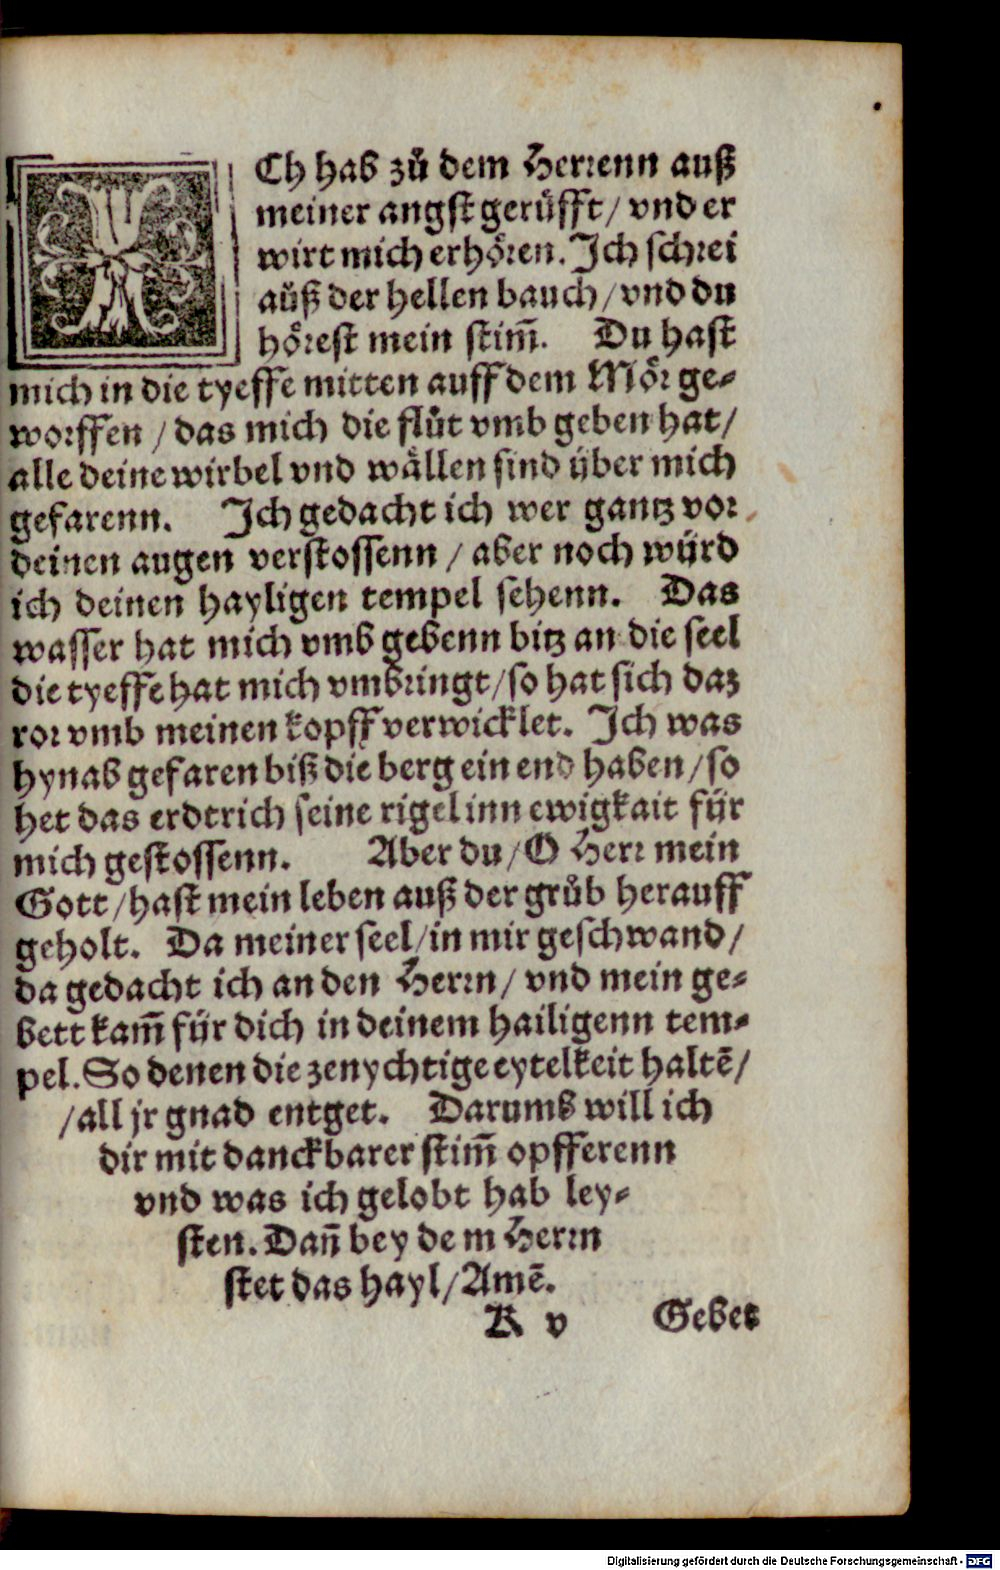 ICh hab zů dem Herrenn auß
meiner angst gerůfft / vnd er
wirt mich erhören. Ich schrei
aůß der hellen bauch / vnd du
hörest mein stim̃. Du hast
mich in die tyeffe mitten auff dem Mör ge⸗
worffen / das mich die flůt vmb geben hat /
alle deine wirbel vnd wällen sind über mich
gefarenn. Ich gedacht ich wer gantz vor
deinen augen verstossenn / aber noch würd
ich deinen hayligen tempel sehenn. Das
wasser hat mich vmb gebenn bitz an die seel
die tyeffe hat mich vmbringt / so hat sich daz
ror vmb meinen kopff verwicklet. Ich was
hynab gefaren biß die berg ein end haben / so
het das erdtrich seine rigel inn ewigkait für
mich gestossenn. Aber du / O Herr mein
Gott / hast mein leben auß der grůb herauff
geholt. Da meiner seel / in mir geschwand /
da gedacht ich an den Herrn / vnd mein ge⸗
bett kam̃ für dich in deinem hailigenn tem⸗
pel. So denen die zenychtige eytelkeit haltẽ /
/ all jr gnad entget. Darumb will ich
dir mit danckbarer stim̃ opfferenn
vnd was ich gelobt hab ley⸗
sten. Dañ bey dem Herrn
stet das hayl / Amẽ.
K v Gebet
Digitalisierung gefördert durch die Deutsche Forschungsgemeinschaft - DFG